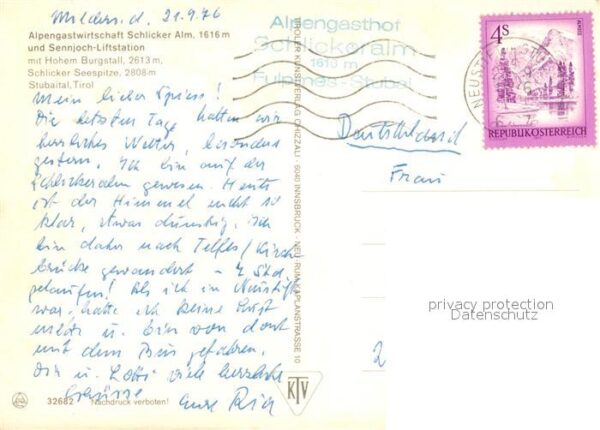 Mieders, d. 21.9.76
Alpengastwirtschaft Schlicker Alm, 1616 m
und Sennjoch-Liftstation
mit Hohem Burgstall, 2613 m,
Schlicker Seespitze, 2808 m
Stubaital, Tirol
Mein lieber
Die letzten Tage hatten wir
herrliches Wetter, besonders
gestern. Ich bin auf der
Schlickeralm gewesen. Heute
ist der Himmel nicht so
klar, etwas dunstig. Ich
bin daher nach Telfes/Kirch
brücke gewandert - 4 Std.
gelaufen! Als ich in Neustift
war, hatte ich keine Lust
mehr u. bin von dort
mit dem Bus gefahren.
Dir u. viele herzliche
Grüsse Eure
32682 Nachdruck verboten!
TIROLER KUNSTVERLAG CHIZZALI · 6040 INNSBRUCK · NEU-RUM, KAPLANSTRASSE 10
KTV
Alpengasthof
Schlickeralm
1616 m
Fulpmes-Stubai
4S
ALMSEE
REPUBLIK ÖSTERREICH
NEUSTIFT
Deutschland
Frau
privacy protection
Datenschutz
2